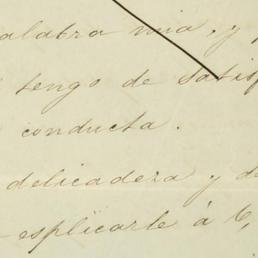 alabra mia, y
tengo de satisf
conducta.
delicadeza y de
esplicarle á